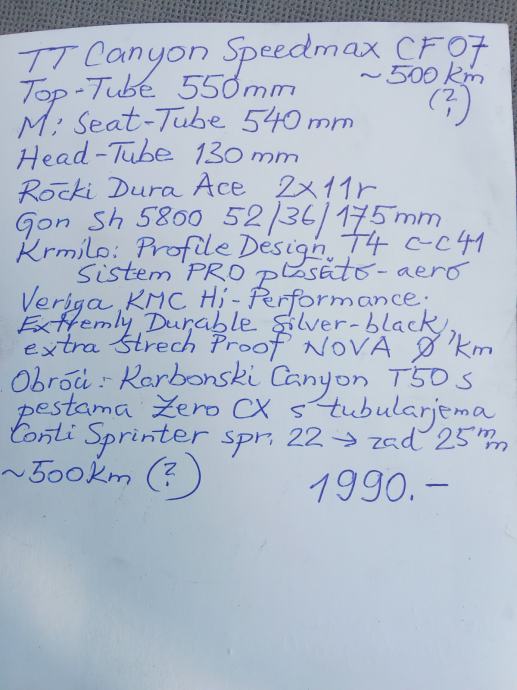 TT Canyon Speedmax CF 07
~500 km
Top-Tube 550mm
(?)
M: Seat-Tube 540mm
Head-Tube 130mm
Ročki Dura Ace 2x11r
Gon Sh 5800 52/36/175mm
Krmilo: Profile Design T4 c-c 41
Sistem PRO ploščato-aero
Veriga KMC Hi-Performance.
Extremly Durable Silver-black,
extra Strech Proof NOVA Ø km
Obroči: Karbonski Canyon T50 s
pestama Zero CX s tubularjema
Conti Sprinter spr. 22 → zad 25mm
~500km (?) 1990.-